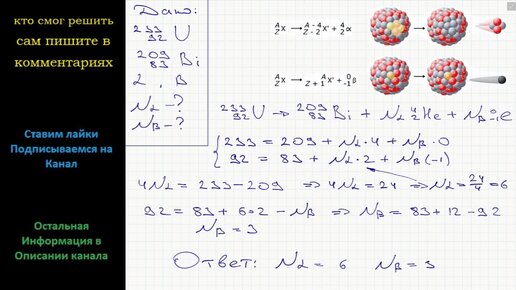 кто смог решить
сам пишите в
комментариях
Ставим лайки
Подписываемся на
Канал
Остальная
Информация в
Описании канала
Дано:
²³³₉₂U
²⁰⁹₈₃Bi
α, β
Nα - ?
Nβ - ?
ᴬ_Z X → ᴬ⁻⁴_Z₋₂ X' + ⁴₂α
ᴬ_Z X → ᴬ_Z₊₁ X' + ⁰₋₁β
²³³₉₂U → ²⁰⁹₈₃Bi + Nα ⁴₂He + Nβ ⁰₋₁e
233 = 209 + Nα · 4 + Nβ · 0
92 = 83 + Nα · 2 + Nβ (-1)
4Nα = 233 - 209 ⇒ 4Nα = 24 ⇒ Nα = 24/4 = 6
92 = 83 + 6·2 - Nβ ⇒ Nβ = 83 + 12 - 92
Nβ = 3
Ответ: Nα = 6 Nβ = 3